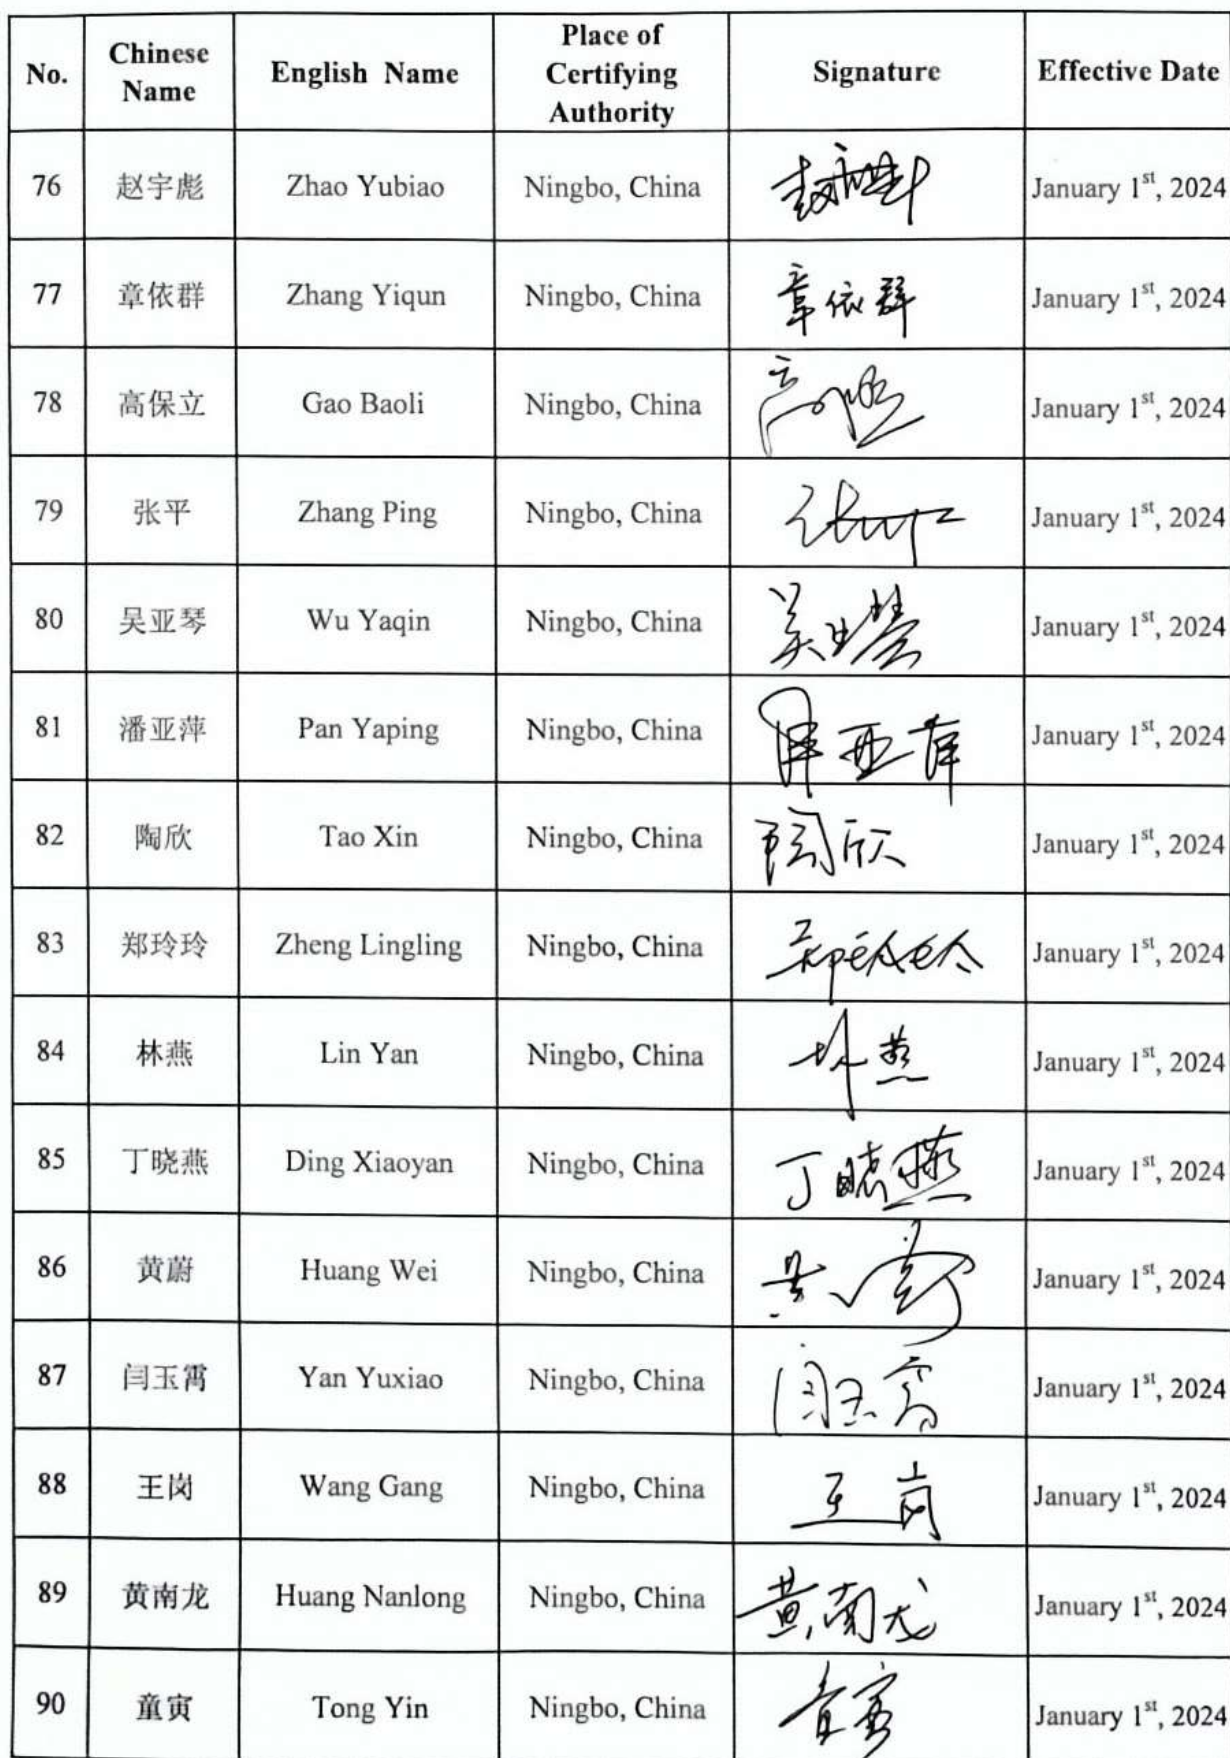 No. Chinese Name English Name Place of Certifying Authority Signature Effective Date
76 赵宇彪 Zhao Yubiao Ningbo, China January 1st, 2024
77 章依群 Zhang Yiqun Ningbo, China 章依群 January 1st, 2024
78 高保立 Gao Baoli Ningbo, China January 1st, 2024
79 张平 Zhang Ping Ningbo, China January 1st, 2024
80 吴亚琴 Wu Yaqin Ningbo, China January 1st, 2024
81 潘亚萍 Pan Yaping Ningbo, China January 1st, 2024
82 陶欣 Tao Xin Ningbo, China 陶欣 January 1st, 2024
83 郑玲玲 Zheng Lingling Ningbo, China 郑玲玲 January 1st, 2024
84 林燕 Lin Yan Ningbo, China 林燕 January 1st, 2024
85 丁晓燕 Ding Xiaoyan Ningbo, China 丁晓燕 January 1st, 2024
86 黄蔚 Huang Wei Ningbo, China January 1st, 2024
87 闫玉霄 Yan Yuxiao Ningbo, China 闫玉霄 January 1st, 2024
88 王岗 Wang Gang Ningbo, China 王岗 January 1st, 2024
89 黄南龙 Huang Nanlong Ningbo, China 黄南龙 January 1st, 2024
90 童寅 Tong Yin Ningbo, China 童寅 January 1st, 2024